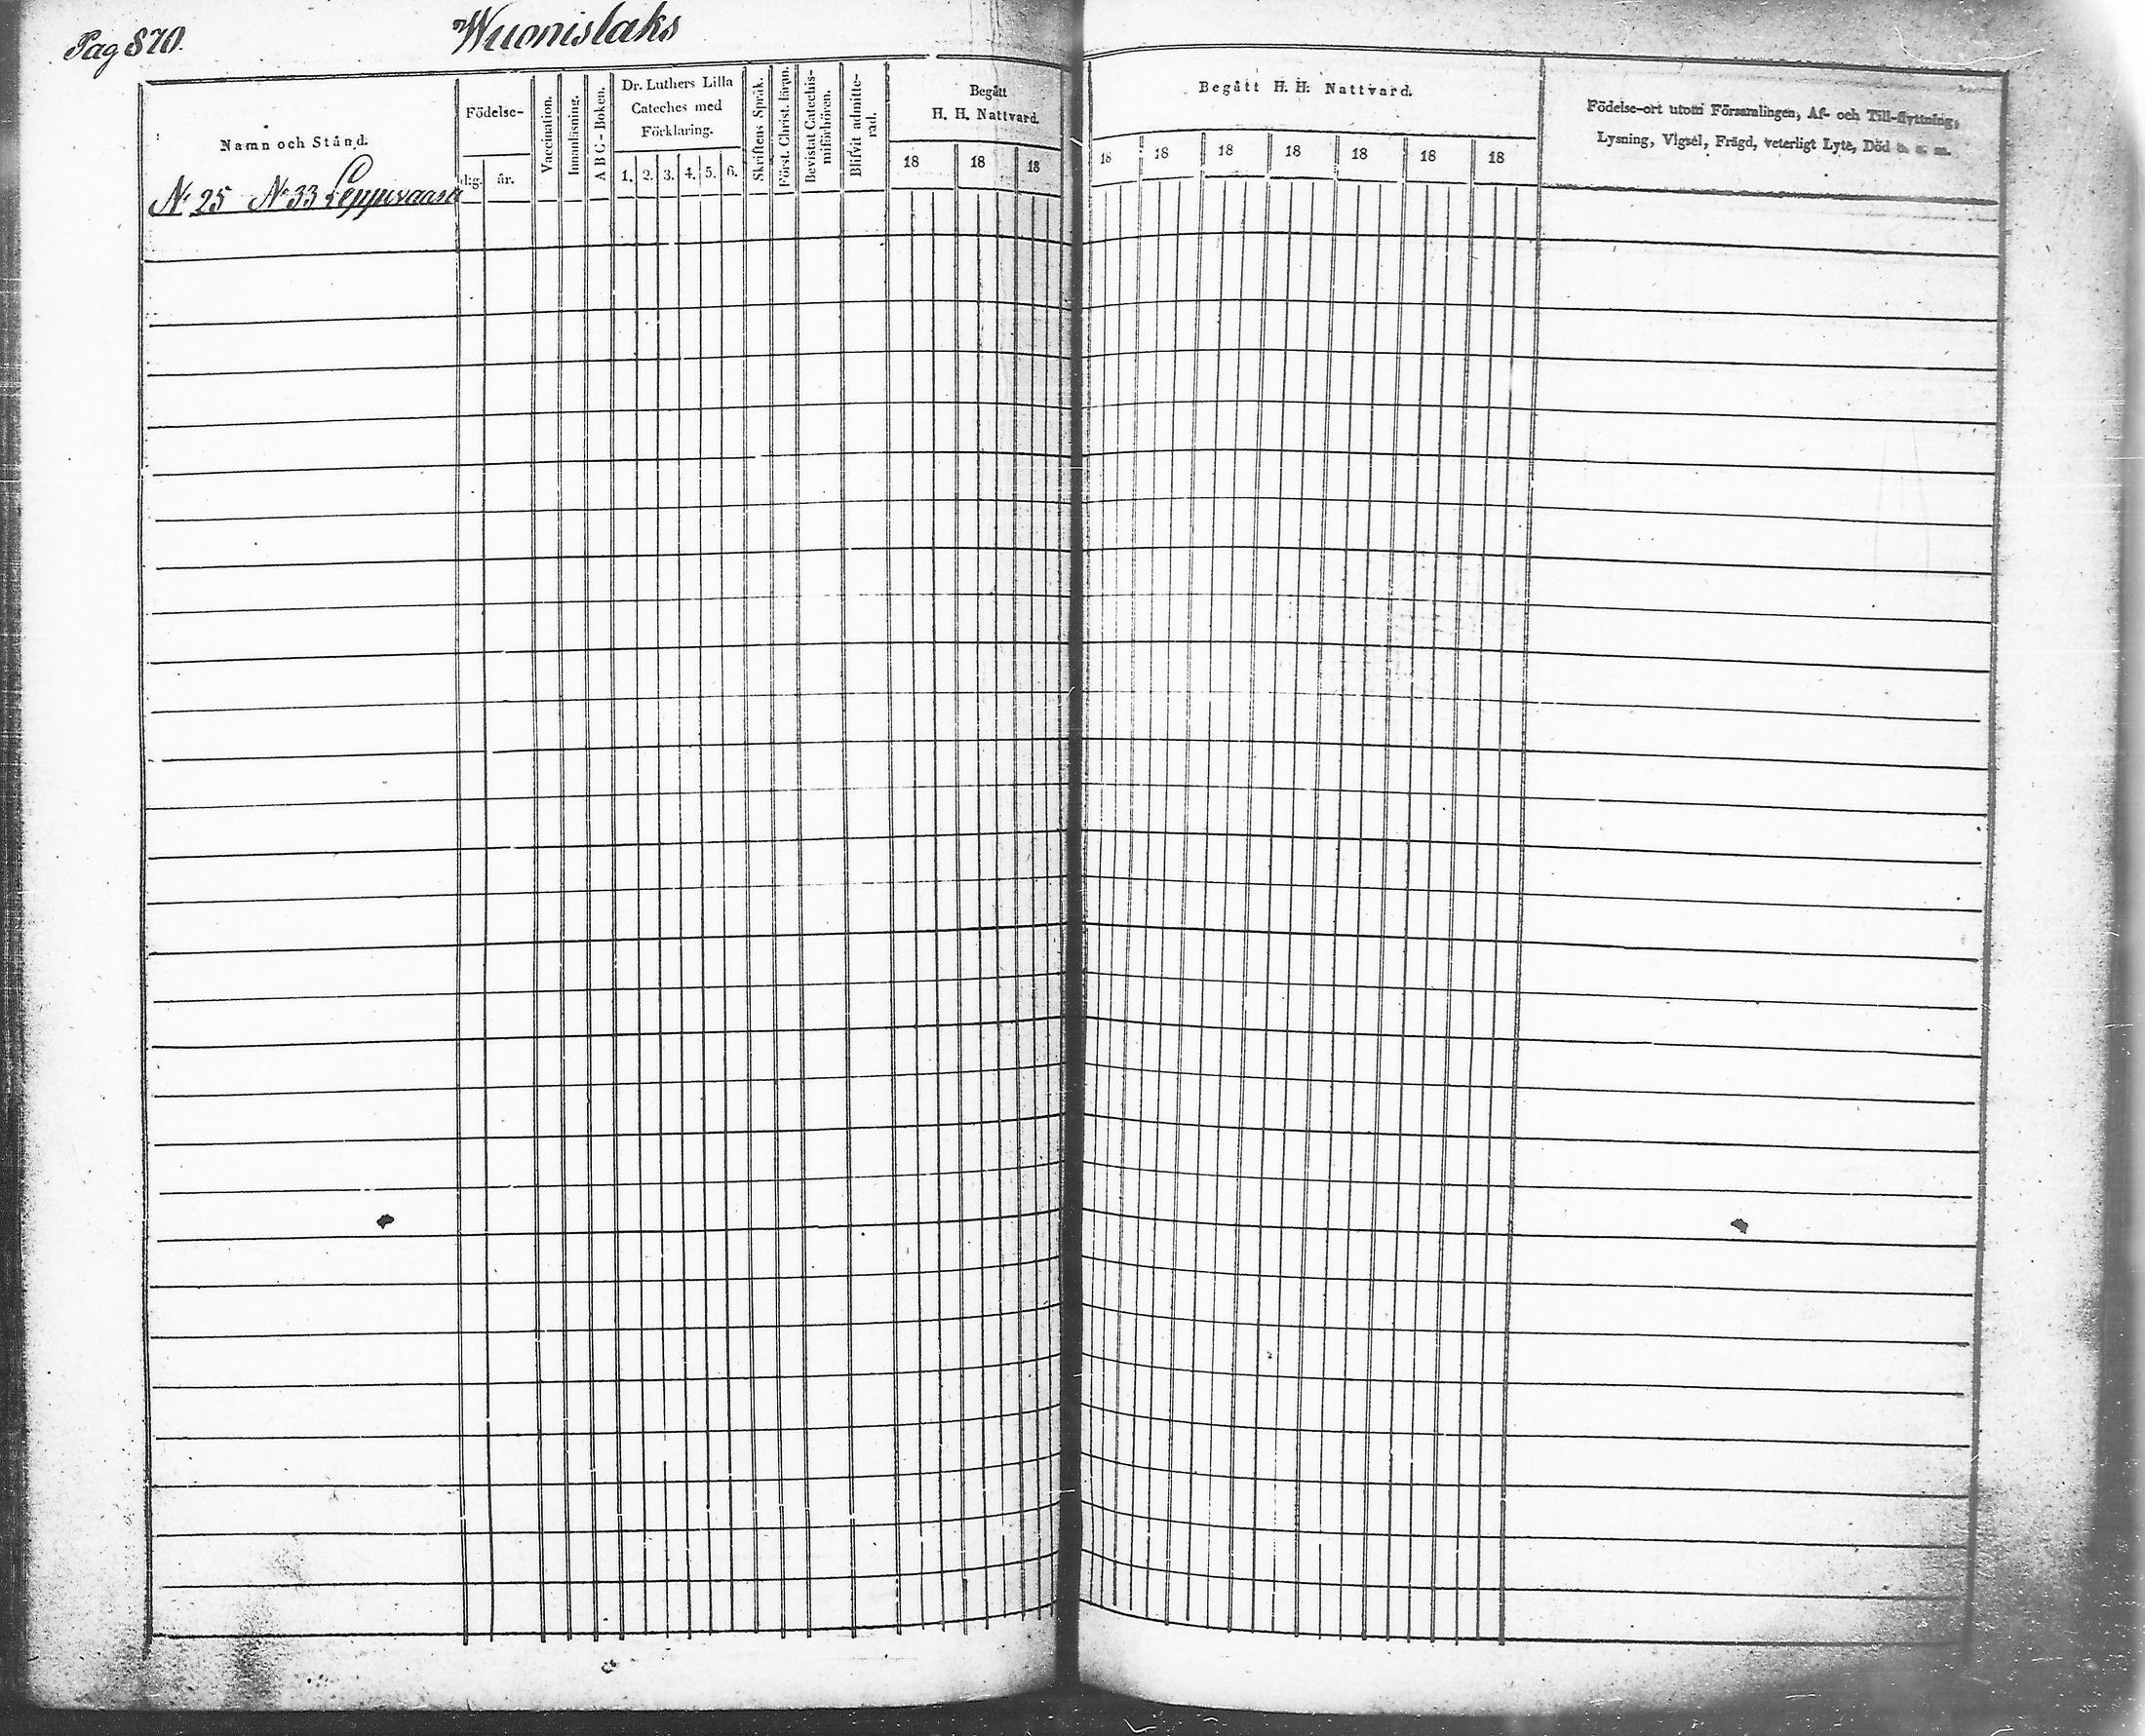 Pag 870.
Wuonislaks
Namn och Stånd.
Födelse-
dag.
år.
Vaccination.
Innanläsning.
ABC-Boken.
Dr. Luthers Lilla
Cateches med
Förklaring.
1. 2. 3. 4. 5. 6.
Skriftens Språk.
Först. Christ. läran.
Bevistat Catechis-
miförhören.
Blifvit admitte-
rad.
Begått
H. H. Nattvard.
18 18 18
Begått H. H. Nattvard.
18 18 18 18 18 18 18
Födelse-ort utom Församlingen, Af- och Till-flyttning,
Lysning, Vigsel, Frägd, veterligt Lyte, Död o. s. m.
N: 25 N: 33 Leppävaara